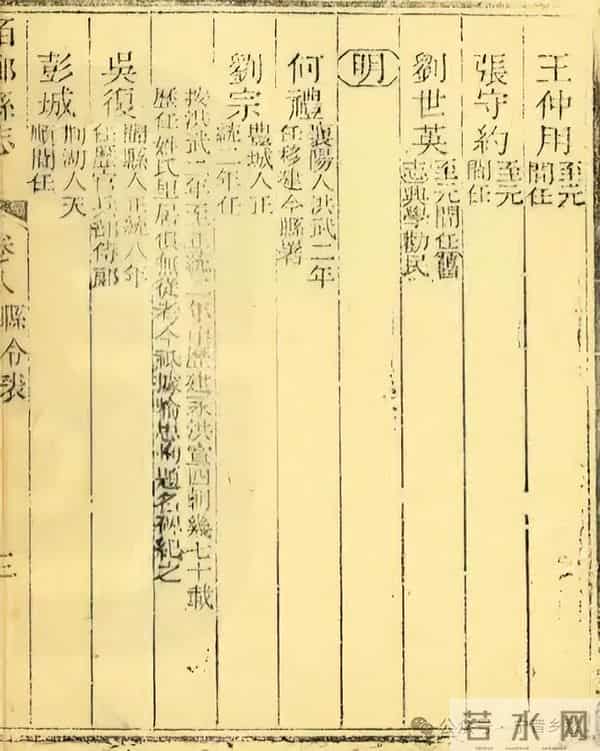 王仲用 至元
間任
張守約 至元
間任
劉世英 至元間任舊
志興學勸民
明
何禮 襄陽人洪武二年
任移建今縣署
劉宗 豐城人正
統二年任
按洪武二年至正統二年中歷建永洪宣四朝幾七十載
歷任姓氏里居俱無從考今祇據 題名碑紀之
吳復 閩縣人正統八年
任歷官兵部 郎
彭城 荊湖人天
順間任
鄉縣志 卷八 縣令表 三
公众号
若水网